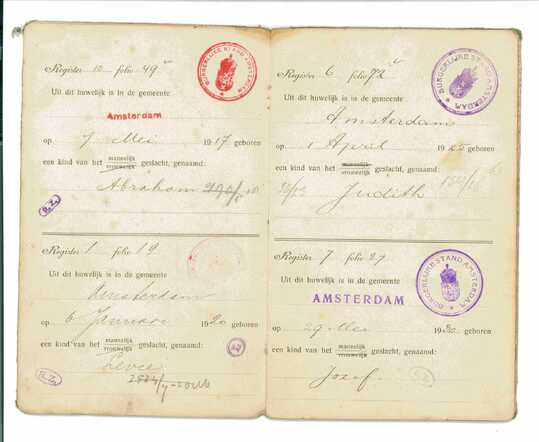 Register 10 folio 49
BURGERLIJKE STAND AMSTERDAM
Uit dit huwelijk is in de gemeente
Amsterdam
op 7 Mei 1917 geboren
een kind van het mannelijk vrouwelijk geslacht, genaamd:
Abraham
B.Z.
Register 1 folio 19
Uit dit huwelijk is in de gemeente
Amsterdam
op 6 Januari 1920 geboren
een kind van het mannelijk vrouwelijk geslacht, genaamd:
B.Z.
Register 6 folio 72
BURGERLIJKE STAND AMSTERDAM
Uit dit huwelijk is in de gemeente
Amsterdam
op 1 April 19 geboren
een kind van het mannelijk vrouwelijk geslacht, genaamd:
Judith
Register 7 folio 27
BURGERLIJKE STAND AMSTERDAM
Uit dit huwelijk is in de gemeente
AMSTERDAM
op 29 Mei 19 geboren
een kind van het mannelijk vrouwelijk geslacht, genaamd:
Jozef.